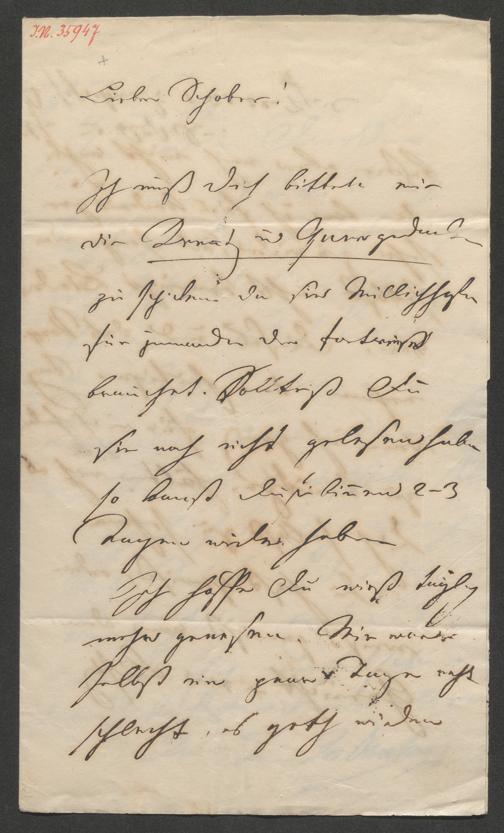 I.N. 35947
Lieber Schober!
Ich muß Dich bitten mir
die und
zu schicken da sie
für jemanden der fortreist
braucht. Solltest Du
sie noch nicht gelesen haben
so kanst Du sie binnen 2-3
Tagen wieder haben
Ich hoffe Du wirst täglich
mehr genesen. Mir war
selbst ein paar Tage recht
schlecht, es geth wieder